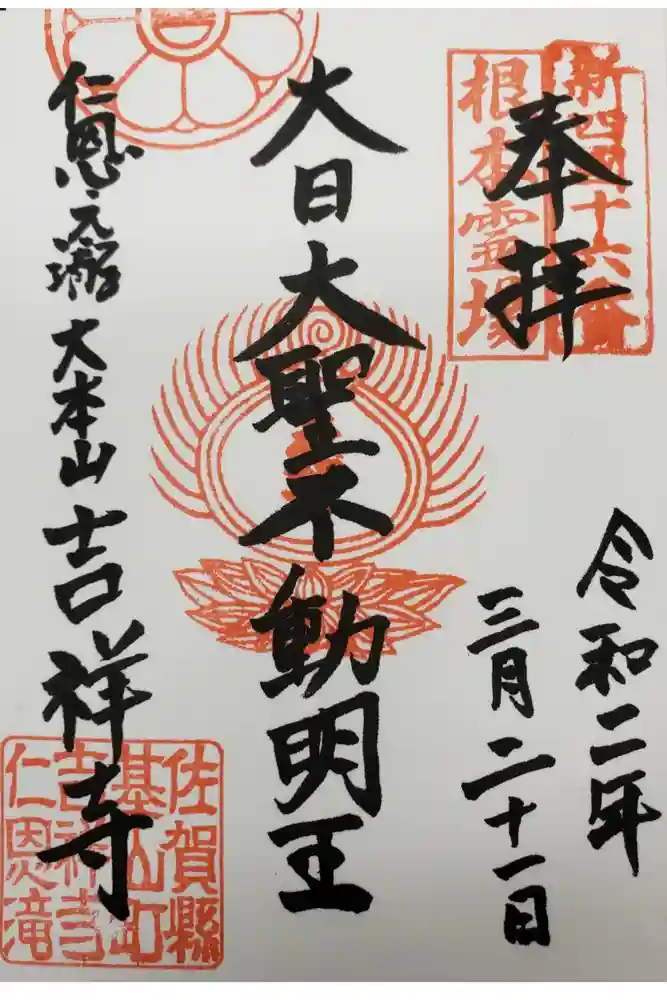 奉拝
新四国十六番
根本霊場
令和二年
三月二十一日
大日大聖不動明王
仁恩之瀧
大本山吉祥寺
佐賀縣
基山町
吉祥寺
仁恩滝